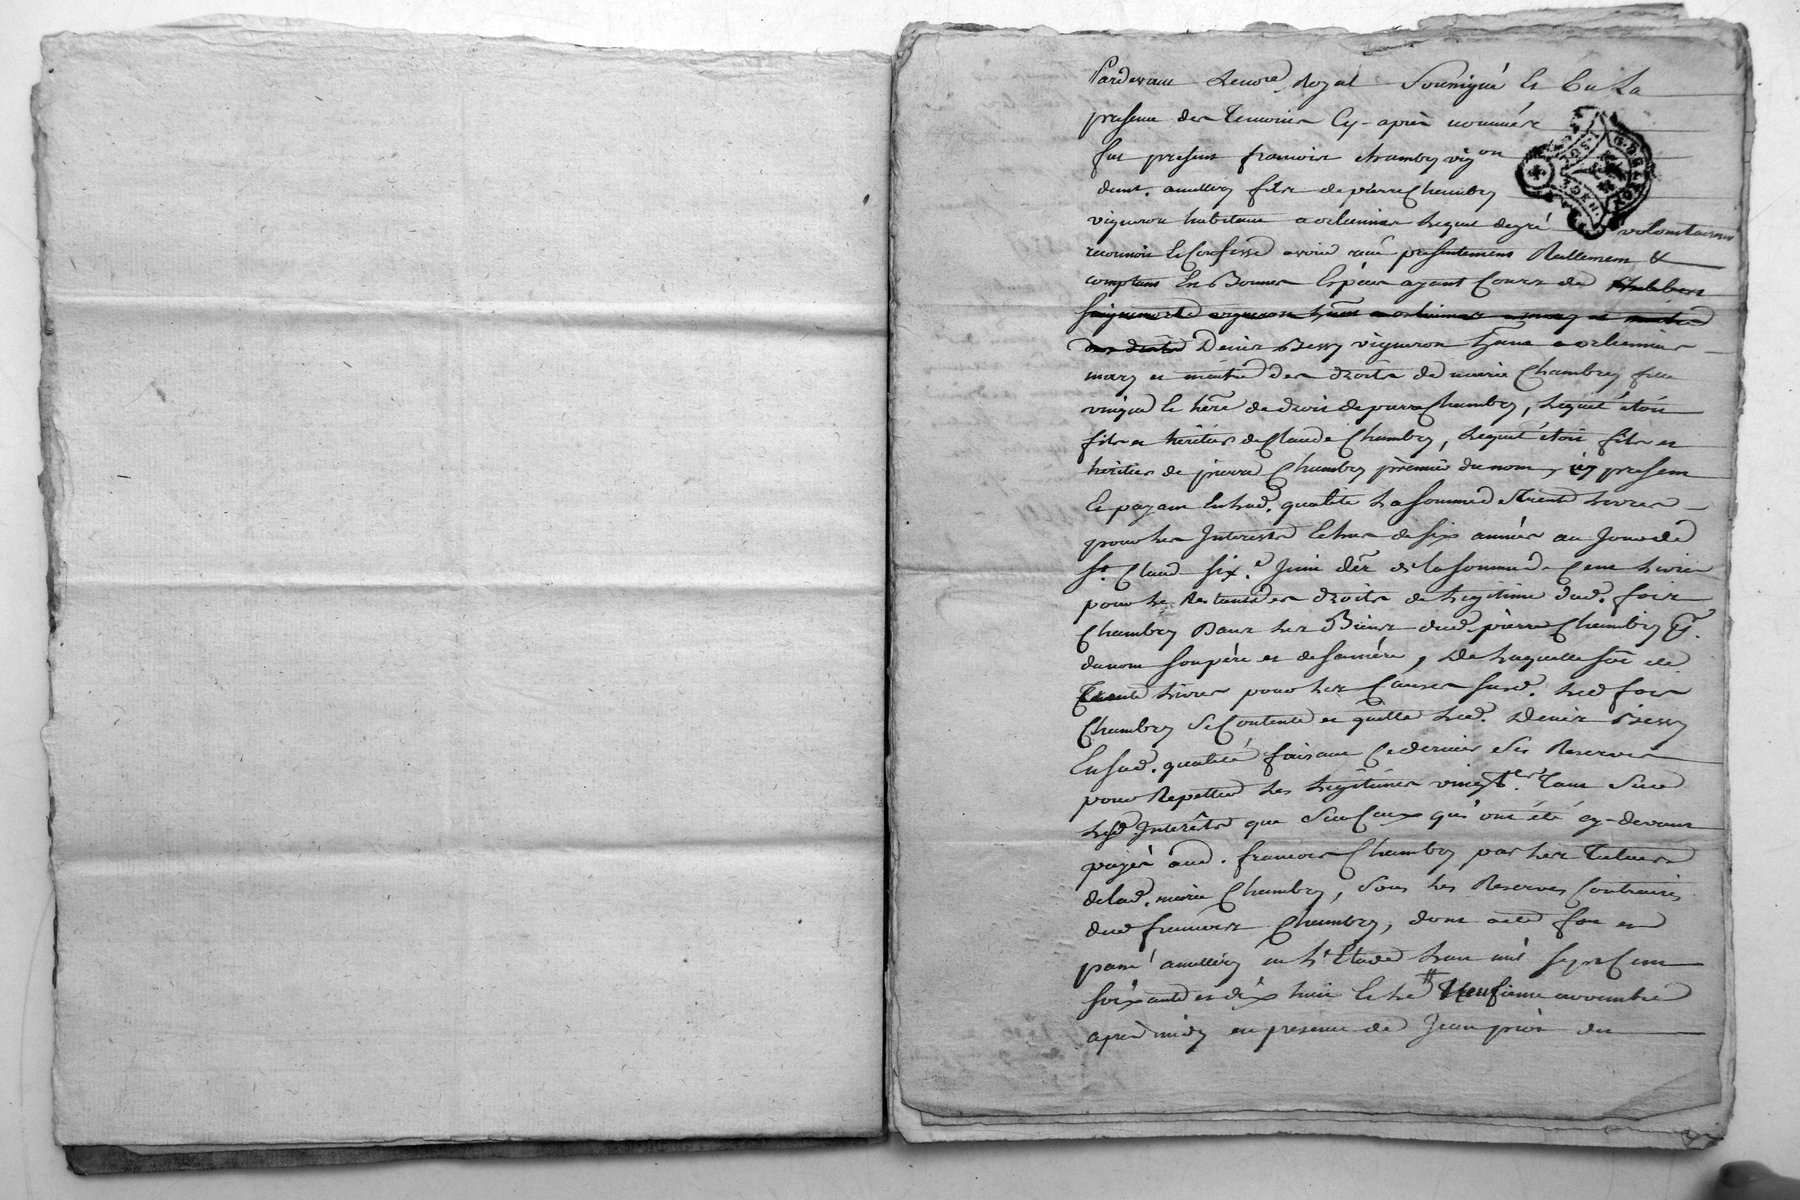 Pardevant Lenore Royal Soussigné Et En La
presence des Temoins Cy-après nommés
fut present francois Chambry vigon
demt. fils de pierre Chambry
vigneron habitant a orliennas Lequel degré volontairement
reconnoit Et Confesse avoir reçu presentement Reellement &
comptant En Bonnes Espèces ayant Cours de
vigneron
Denis Bessy vigneron hant a orliennas
mary et maitre des droits de marie Chambry fille
unique Et hére de droit de pierre Chambry, Lequel étoit
fils et héritier de Claude Chambry, Lequel étoit fils et
héritier de pierre Chambry premier du nom, icy present
Et payant Enlad. qualité La Somme de Trente Livres
pour Les Interests Echus de six années au Jour de
St. Claud six.e Juin der de la Somme de Cent Livres
pour Le Restant des droits de Legitime dud. fois
Chambry Dans Les Biens dud. pierre Chambry
du nom Son père et de Sa mère, De Laquelle Soe de
Trente Livres pour Les Causes Susd. Led fois
Chambry Se Contente et quitte Led. Denis Bessy
Ensad. qualité faisant Ce dernier Ses Reserves
pour Repetter Les Legitimes vingt.es Tant Sur
Lesd Interêts que Sur Ceux qui ont été cy-devant
payés aud. francois Chambry par Les Tuteurs
delad. marie Chambry, Sous Les Reserves Contraires
dud francois Chambry, dont acte fait et
passé en L'Etude Lan mil Sept Cent
soixante et dix huit Et Le Neufieme novembre
après midy en presence de Jean prior du